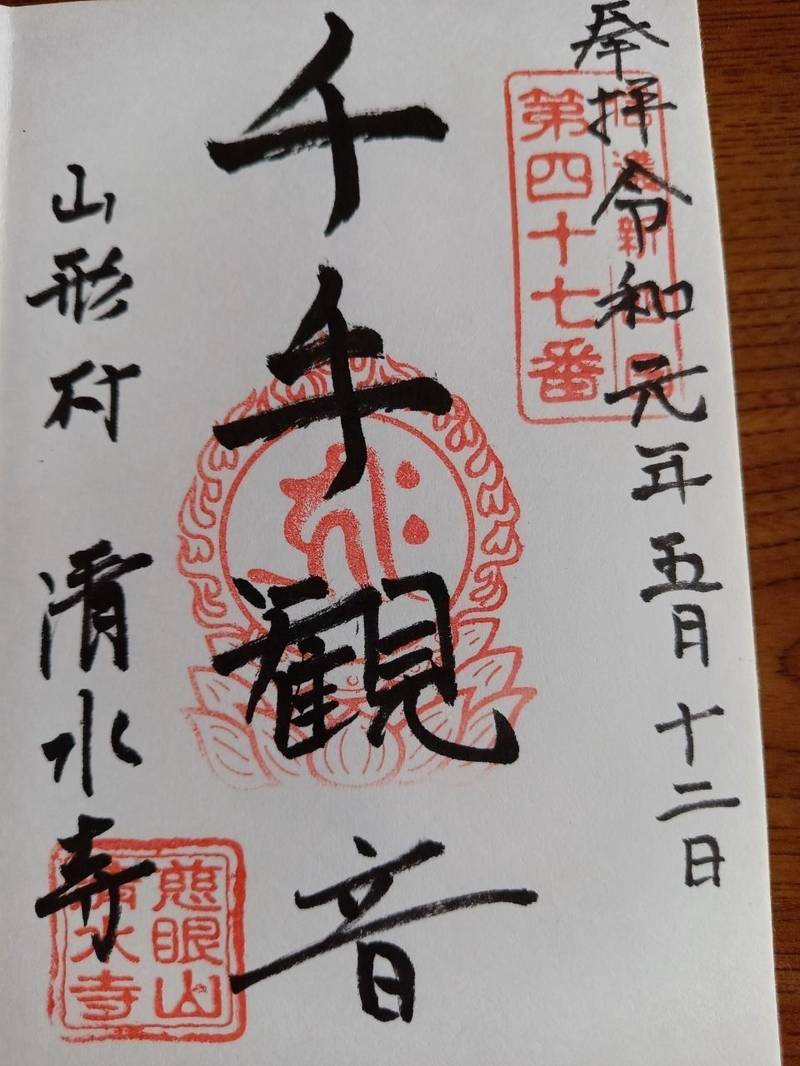 奉拝令和元年五月十二日
信濃新
第四十七番
千手観音
山形村 清水寺
慈眼山
清水寺